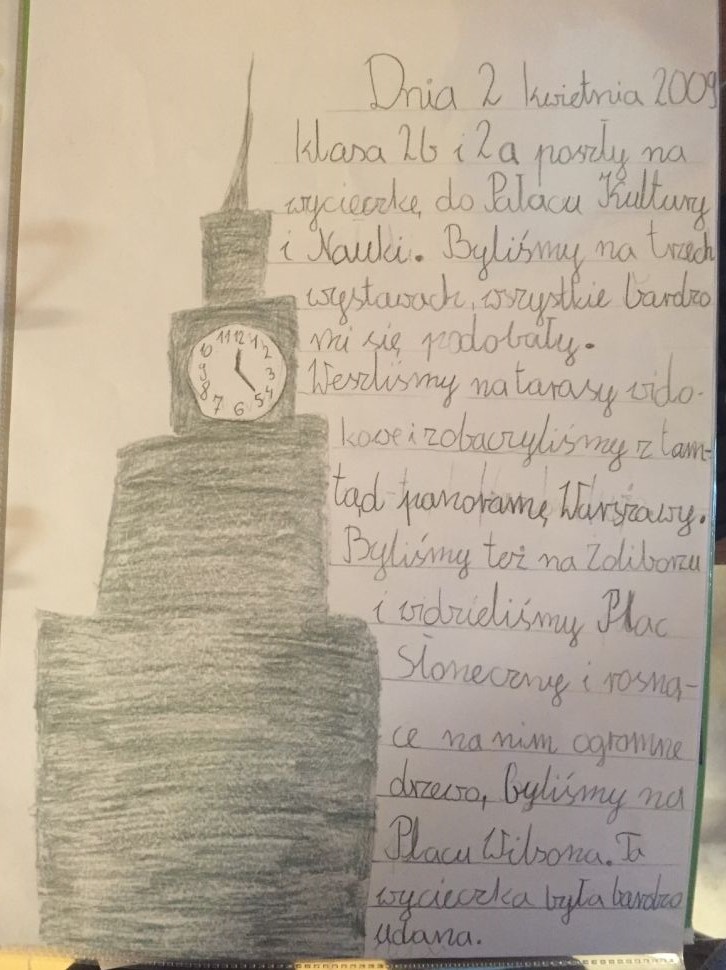 Dnia 2 kwietnia 2009
klasa 2b i 2a poszły na
wycieczkę do Pałacu Kultury
i Nauki. Byliśmy na trzech
wystawach, wszystkie bardzo
mi się podobały.
Weszliśmy na tarasy wido-
kowe i zobaczyliśmy z tam-
tąd panoramę Warszawy.
Byliśmy też na Żoliborzu
i widzieliśmy Plac
Słoneczny i rosną-
ce na nim ogromne
drzewo, byliśmy na
Placu Wilsona. Ta
wycieczka była bardzo
udana.
11 12 1
10 2
9 3
8 4
7 6 5